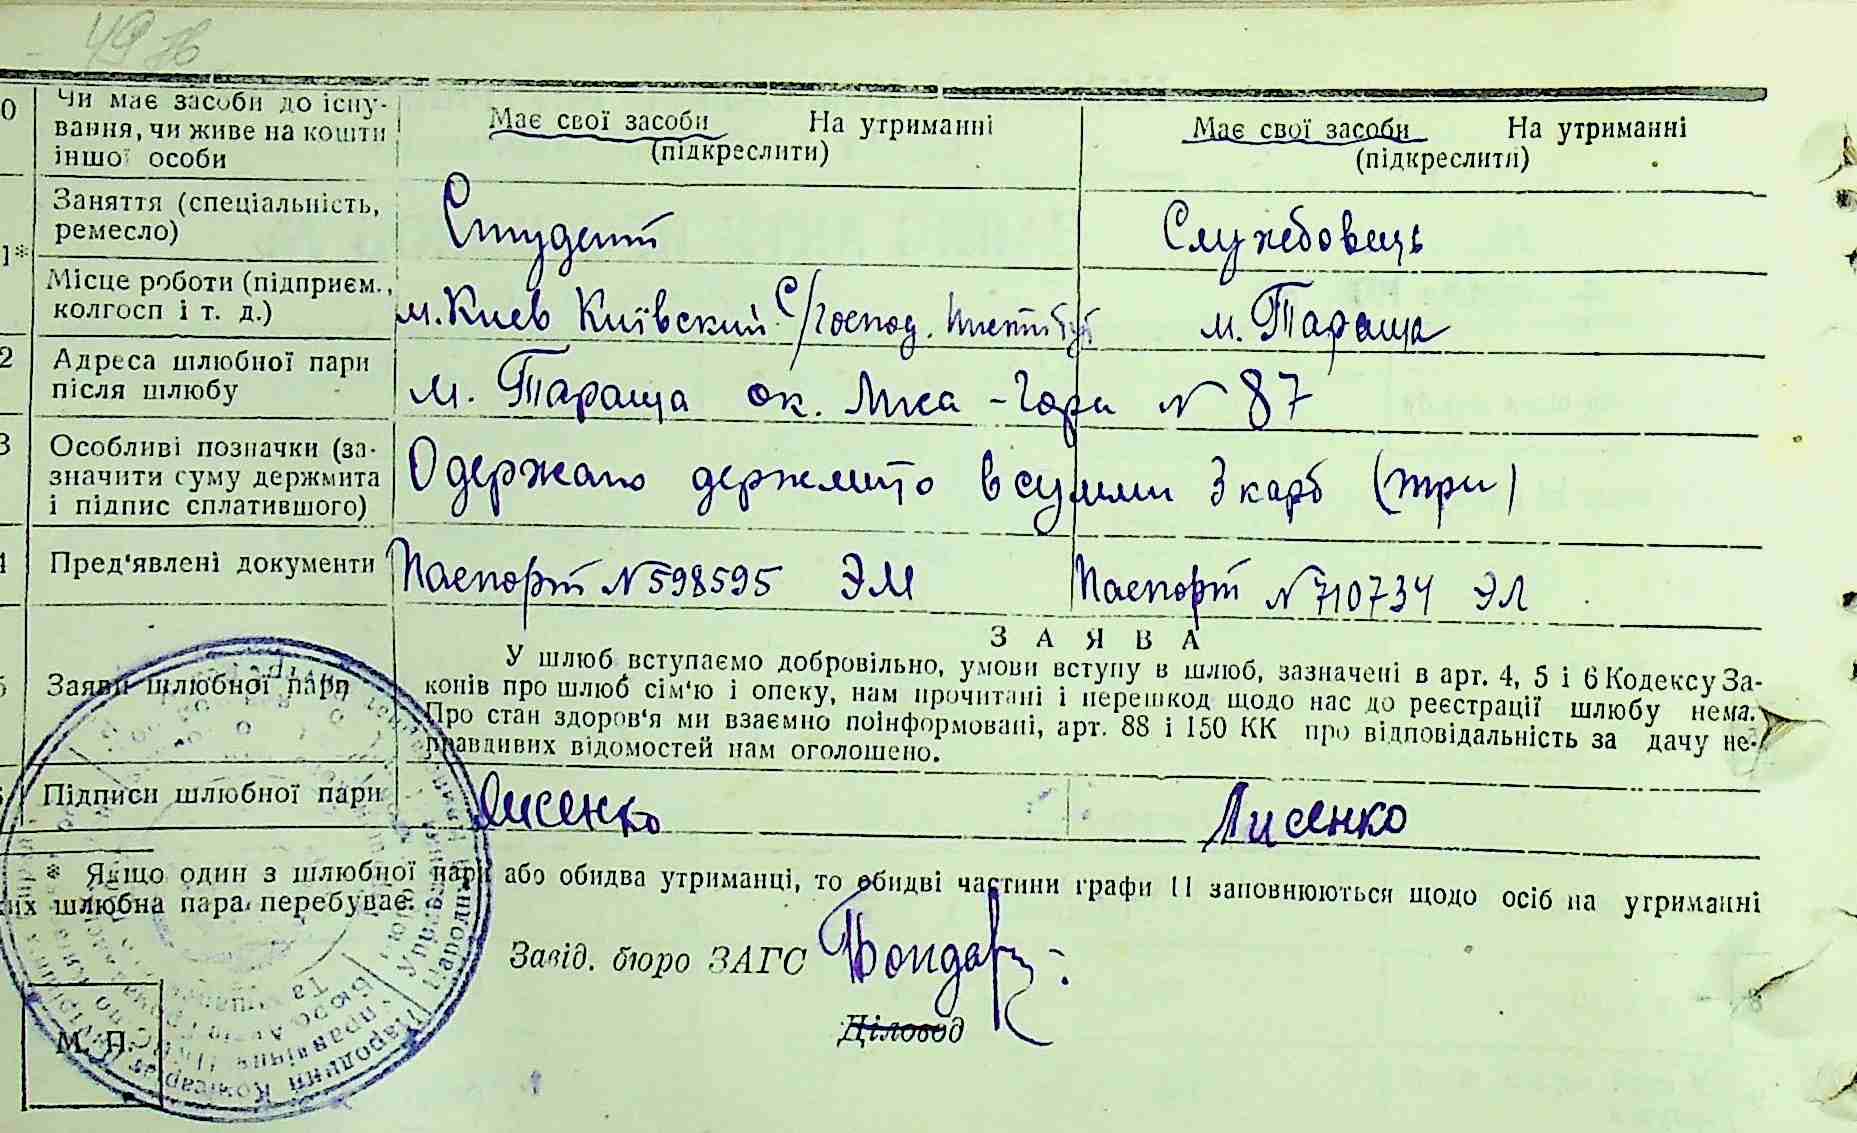 49
0 Чи має засоби до існу-
вання, чи живе на кошти
іншої особи
Має свої засоби На утриманні
(підкреслити)
Має свої засоби На утриманні
(підкреслити)
1*
Заняття (спеціальність,
ремесло)
Студент
Службовець
Місце роботи (підприєм.,
колгосп і т. д.)
м. Киев Київский С/Господ. Институт
м. Тараща
2 Адреса шлюбної пари
після шлюбу
м. Тараща ок. Лиса-Гора № 87
3 Особливі позначки (за-
значити суму держмита
і підпис сплатившого)
Одержано держмито в сумми 3 карб (три)
4 Пред'явлені документи
Паспорт № 598595 ЭМ
Паспорт № 710734 ЭЛ
5 Заяви шлюбної пари
ЗАЯВА
У шлюб вступаємо добровільно, умови вступу в шлюб, зазначені в арт. 4, 5 і 6 Кодексу За-
конів про шлюб сім'ю і опеку, нам прочитані і перешкод щодо нас до реєстрації шлюбу нема.
Про стан здоров'я ми взаємно поінформовані, арт. 88 і 150 КК про відповідальність за дачу не-
правдивих відомостей нам оголошено.
Підписи шлюбної пари
Лисенко
Лисенко
* Якщо один з шлюбної пари або обидва утриманці, то обидві частини графи 11 заповнюються щодо осіб на утриманні
ких шлюбна пара перебуває.
Завід. бюро ЗАГС
Діловод
М. П.
Народний Комісаріат